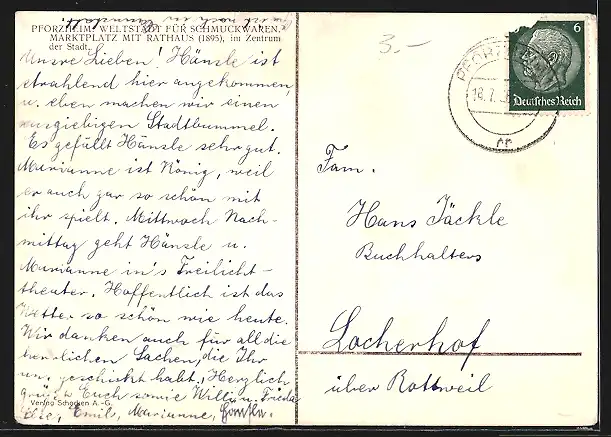 PFORZHEIM! WELTSTADT FÜR SCHMUCKWAREN.
MARKTPLATZ MIT RATHAUS (1895), im Zentrum
der Stadt.
Unsre Lieben! Hänsle ist
strahlend hier angekommen,
u. eben machen wir einen
ausgiebigen Stadtbummel.
Es gefällt Hänsle sehr gut.
Marianne ist König, weil
er auch gar so schön mit
ihr spielt. Mittwoch Nach-
mittag geht Hänsle u.
Marianne in's Freilicht-
theater. Hoffentlich ist das
Wetter so schön wie heute.
Wir danken auch für all die
herrlichen Sachen, die Ihr
uns geschickt habt. Herzlich
grüßt Euch sowie Willi u. Frieda
Verlag Schocken A.-G.
Emil, Marianne,
3.-
PFORZHEIM
18.7.
6
Deutsches Reich
Fam.
Hans Jäckle
Buchhalters
Locherhof
über Rottweil